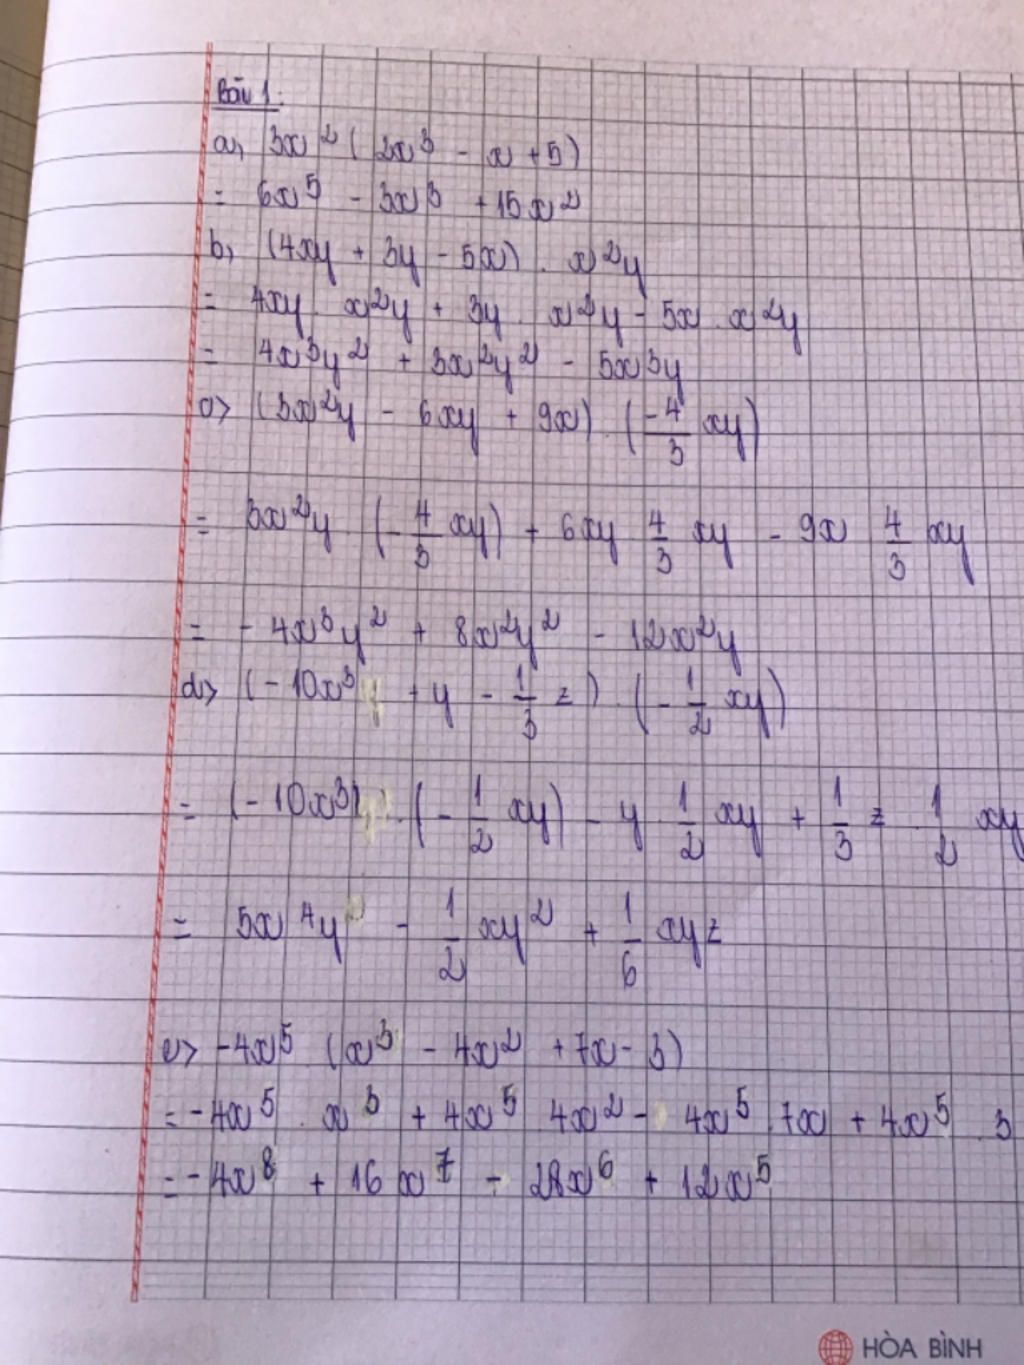 Bài 1:
a, 3x² (2x³ - x + 5)
= 6x⁵ - 3x³ + 15x²
b, (4xy + 3y - 5x) . x²y
= 4xy . x²y + 3y . x²y - 5x . x²y
= 4x³y² + 3x²y² - 5x³y
c> (3x²y - 6xy + 9x) . (-4/3 xy)
= 3x²y . (-4/3 xy) + 6xy 4/3 xy - 9x 4/3 xy
= - 4x³y² + 8x²y² - 12x²y
d> (-10x³ + y - 1/3 z) . (-1/2 xy)
= (-10x³) . (-1/2 xy) - y . 1/2 xy + 1/3 z . 1/2 xy
= 5x⁴y - 1/2 xy² + 1/6 xyz
e> -4x⁵ (x³ - 4x² + 7x - 3)
= -4x⁵ . x³ + 4x⁵ 4x² - 4x⁵ . 7x + 4x⁵ . 3
= -4x⁸ + 16x⁷ - 28x⁶ + 12x⁵
HÒA BÌNH